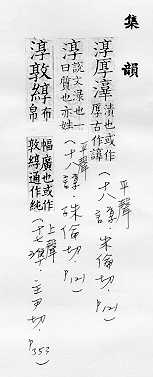 集韻
淳 漬也或作
厚古作
平聲
(十八諄·朱倫切·P121)
淳 說文淥也一
曰質也亦姓
平聲
(十八諄·殊倫切·P121)
淳敦綧 布帛
幅廣也或作
敦綧通作純
上聲
(十七準·主尹切·P353)